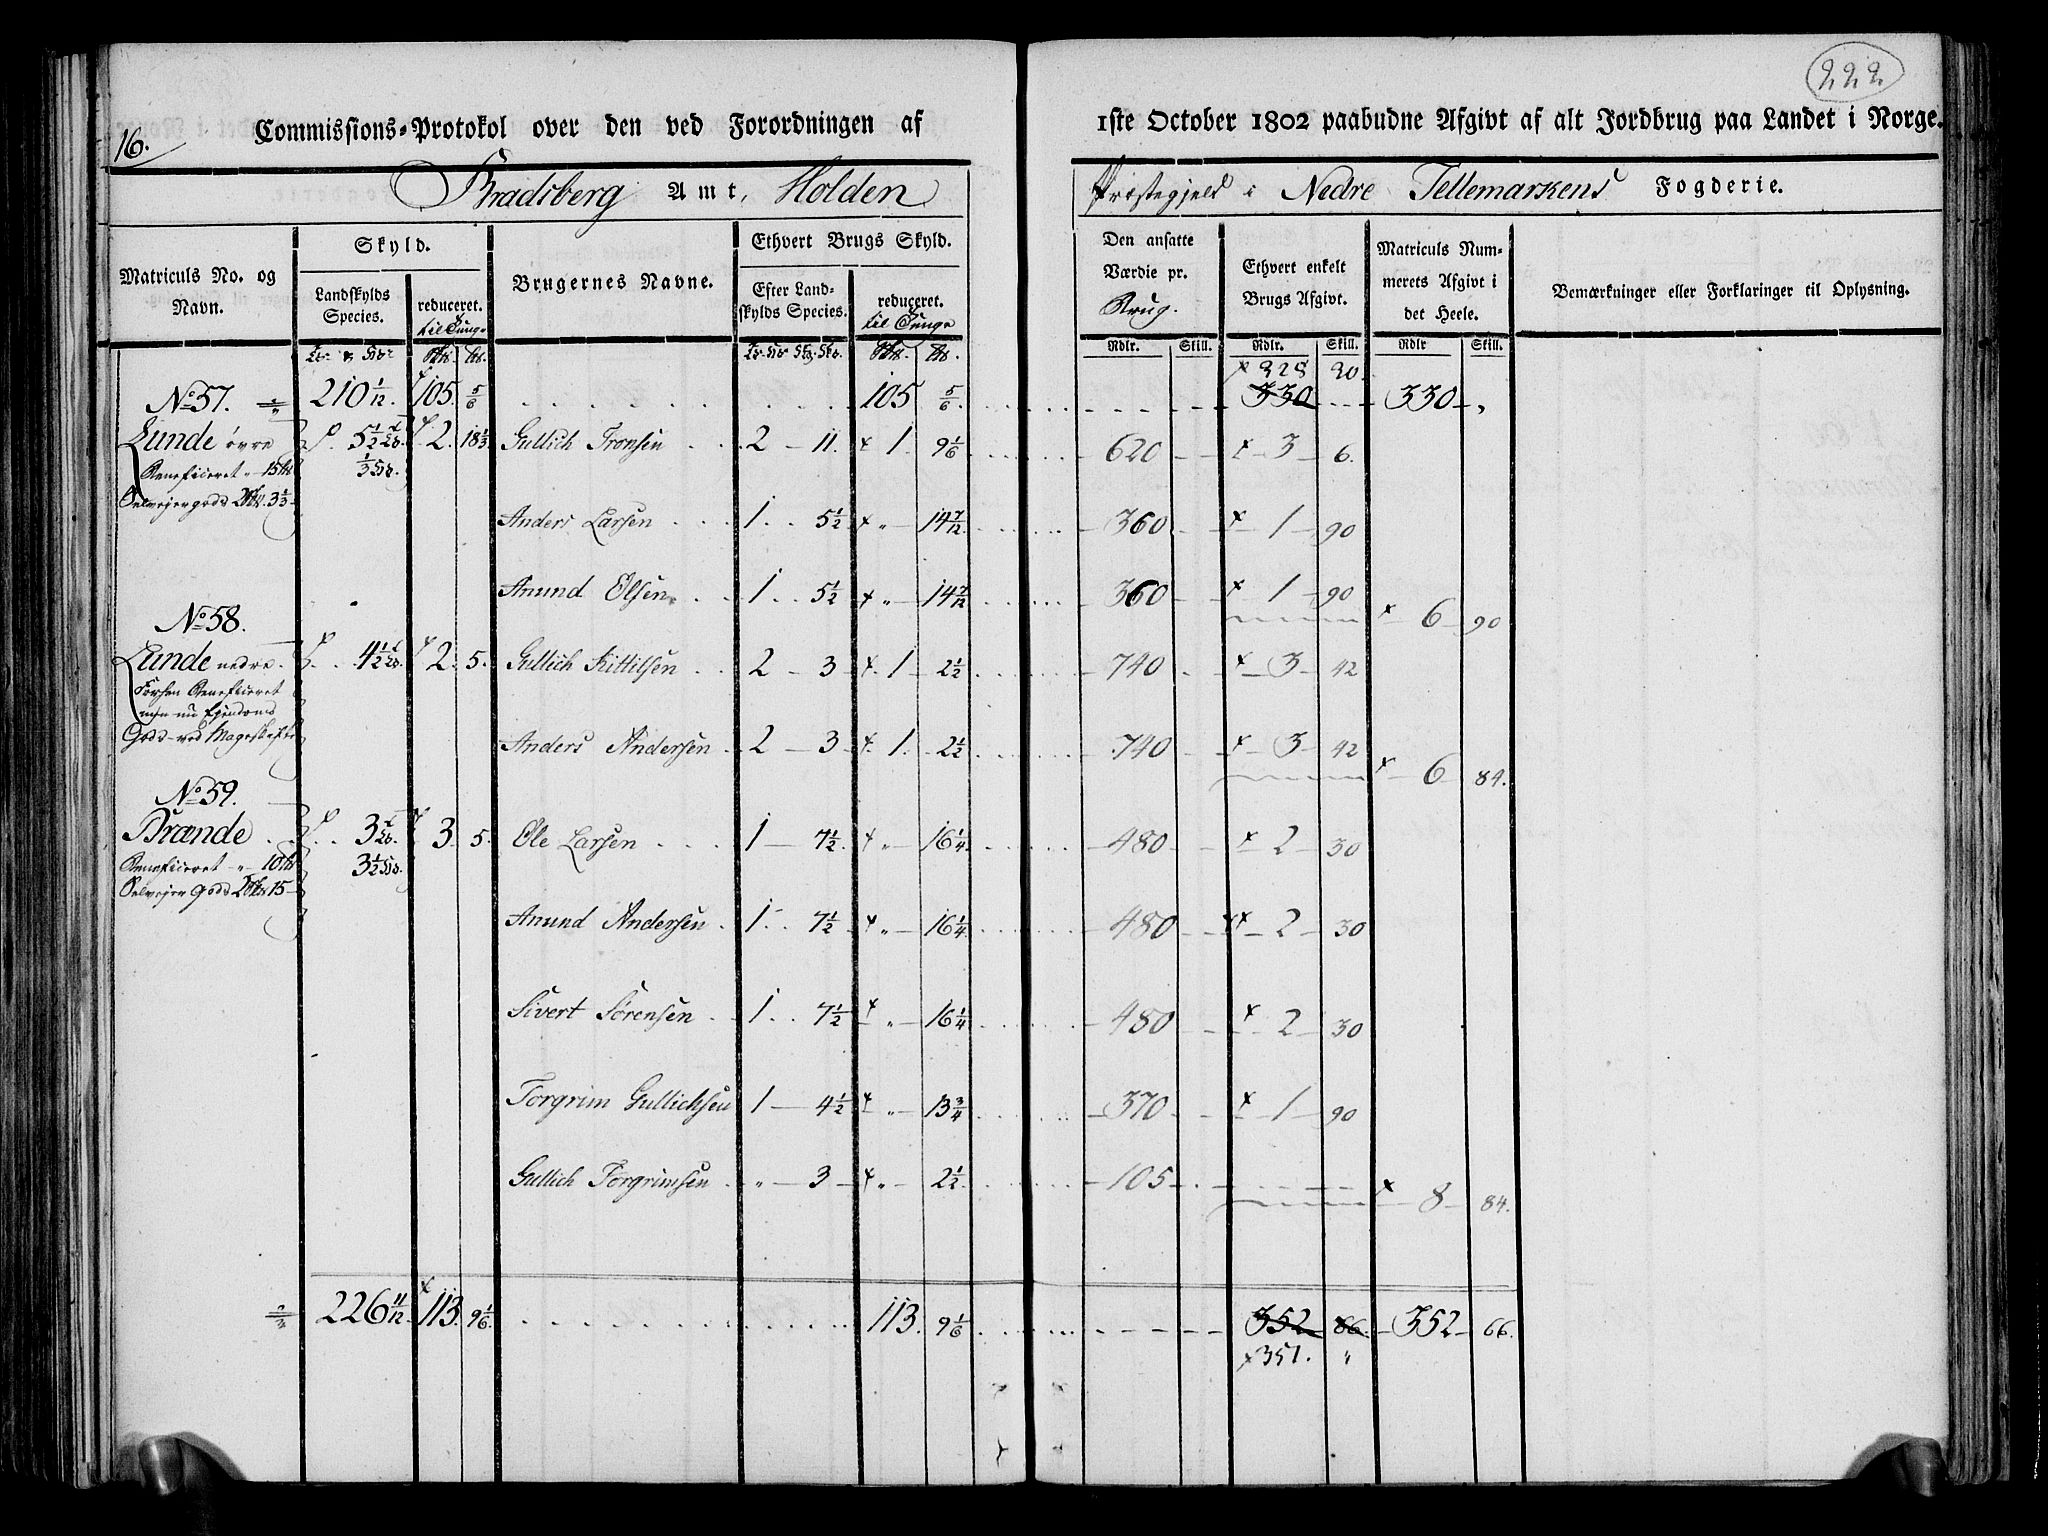 222.
16.
Commissions-Protokol over den ved Forordningen af 1ste October 1802 paabudne Afgivt af alt Jordbrug paa Landet i Norge.
Bradsberg Amt, Holden Præstegjeld i Nedre Tellemarkens Fogderie.
Matriculs No. og Navn. Skyld. Landskylds Species. reduceret. til Tunge Brugernes Navne. Ethvert Brugs Skyld. Efter Landskylds Species. reduceret. til Tunge Den ansatte Værdie pr. Brug. Ethvert enkelt Brugs Afgivt. Matriculs Nummerets Afgivt i det Heele. Bemærkninger eller Forklaringer til Oplysning.
Rdlr. Skill. Rdlr. Skill. Rdlr Skill.
328 20.
No 57. 210 1/12. 105. 5/6 105 5/6. 330 330
Lunde övre 5 1/2 Lb. 2. 18 1/3 Gullich Tronsen 2 11. 1. 9 1/6 620 3 6.
Beneficeret 15
1/3
Selveiergods 2 3 1/3
Anders Larsen 1 5 1/2 14 7/12 360 1 90
Amund Olsen 1 5 1/2 14 7/12 360 1 90
No 58. 6 90
Lunde nedre. 4 1/2 Lb. 2. 5. Gullich Kittilsen 2 3 1 2 1/2 740 3 42
Forhen Beneficeret
men nu Ejendoms
Gods ved Mageskifte
Anders Andersen 2 3 1. 2 1/2 740 3 42
6 84.
No 59.
Brænde 3 Lb. 3 5. Ole Larsen 1 7 1/2 16 1/4 480 2 30
Beneficeret 10
3 1/2
Selveier Gods 2 15
Amund Andersen 1 7 1/2 16 1/4 480 2 30
Sivert Sörensen 1 7 1/2 16 1/4 480 2 30
Torgrim Gullichsen 1 4 1/2 13 3/4 370 1 90
Gullich Torgrimsen 3 2 1/2 105
8 84.
226 11/12 113. 9 1/6. 113. 9 1/6 352 86. 352 66.
351.